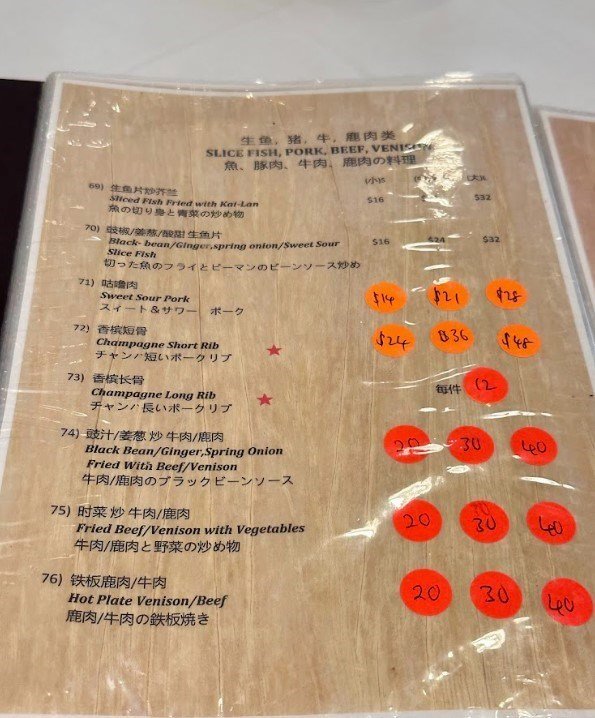 生鱼, 猪, 牛, 鹿肉类
SLICE FISH, PORK, BEEF, VENISON
魚、豚肉、牛肉、鹿肉の料理
(小)S (大)L
69) 生鱼片炒芥兰
Sliced Fish Fried with Kai-Lan $16 $32
魚の切り身と青菜の炒め物
70) 豉椒/姜葱/酸甜 生鱼片
Black- bean/Ginger,spring onion/Sweet Sour $16 $24 $32
Slice Fish
切った魚のフライとピーマンのビーンソース炒め
71) 咕噜肉
Sweet Sour Pork $14 $21 $28
スィート＆サワー ポーク
72) 香槟短骨
Champagne Short Rib $24 $36 $48
チャンパ短いポークリブ
73) 香槟长骨 每件 12
Champagne Long Rib
チャンパ長いポークリブ
74) 豉汁/姜葱 炒 牛肉/鹿肉
Black Bean/Ginger,Spring Onion 20 30 40
Fried With Beef/Venison
牛肉/鹿肉のブラックビーンソース
75) 时菜 炒 牛肉/鹿肉
Fried Beef/Venison with Vegetables 20 30 40
牛肉/鹿肉と野菜の炒め物
76) 铁板鹿肉/牛肉
Hot Plate Venison/Beef 20 30 40
鹿肉/牛肉の鉄板焼き